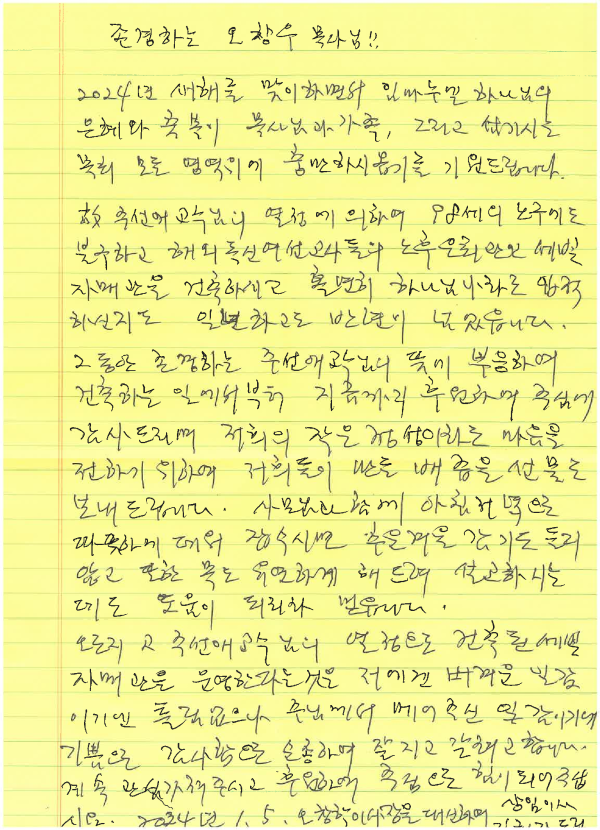 존경하는 오창우 목사님!!
2024년 새해를 맞이하면서 임마누엘 하나님의
은혜와 축복이 목사님과 가족, 그리고 섬기시는
목회 모든 영역위에 충만하시옵기를 기원드립니다.
故 주선애 교수님의 열정에 의하여 98세의 노구에도
불구하고 해외 독신여선교사들의 노후은퇴관인 세빛
자매관을 건축하시고 홀연히 하나님나라로 입적
하신지도 일년하고도 반년이 넘었읍니다.
그동안 존경하는 주선애교수님의 뜻에 부응하여
건축하는 일에서부터 지금까지 후원하여 주심에
감사드리며 저희의 작은 정성이라도 마음을
전하기 위하여 저희들이 만든 배즙을 선물로
보내드립니다. 사모님과 함께 아침저녁으로
따뜻하게 데워 잡수시면 추울겨울 감기도 들지
않고 또한 목도 유연하게 해드려 설교하시는
데도 도움이 되리라 믿읍니다.
오로지 고 주선애교수님의 열정으로 건축된 세빛
자매관을 운영한다는것은 저에겐 버거운 일감
이기엔 틀림없으나 주님께서 메어주신 일감이기에
기쁨으로 감사함으로 순종하며 잘 지고 갈려고 합니다.
계속 관심가져주시고 후원하여 주심으로 힘이 되어주십
시요. 2024년 1. 5. 오창학이사장을 대신하여 상임이사